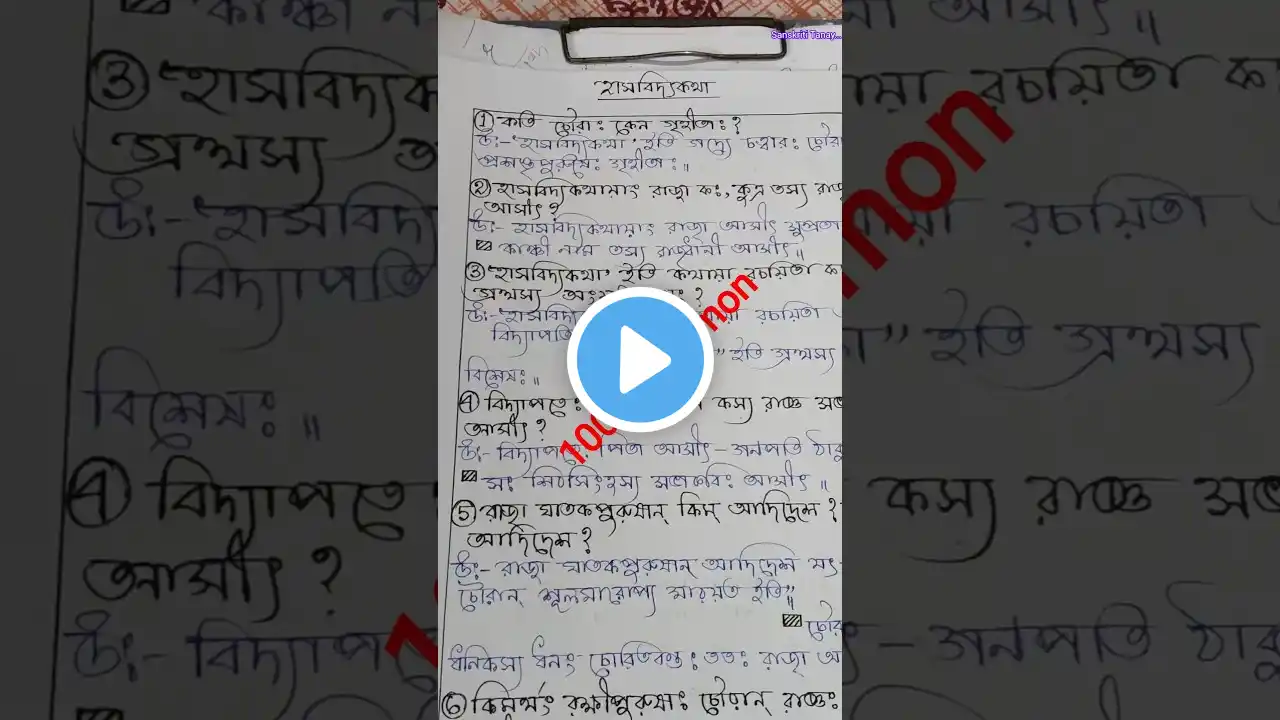 Sanskriti Tanay...
হাসবিদ্যকথা
① কতি চৌরাঃ কেন গৃহীতাঃ?
উঃ- 'হাসবিদ্যকথা' ইতি গদ্যে চত্বারঃ চৌরা
প্রশস্তৃপুরুষৈঃ গৃহীতাঃ॥
② হাসবিদ্যকথায়াং রাজা কঃ, কুত্র তস্য রাজ
আসীৎ?
উঃ- হাসবিদ্যকথায়াং রাজা আসীৎ সুপ্রতা
কাঞ্চী নাম তস্য রাজধানী আসীৎ॥
③ 'হাসবিদ্যকথা' ইতি কথায়া রচয়িতা ক
গ্রন্থস্য
উঃ- 'হাসবিদ্য রচয়িতা
বিদ্যাপতি " ইতি গ্রন্থস্য
বিশেষঃ॥
④ বিদ্যাপতেঃ কস্য রাজ্ঞ সভ
আসীৎ?
উঃ- বিদ্যাপতেঃ পিতা আসীৎ - গনপতি ঠাকু
সঃ শিবসিংহস্য সভাকবিঃ আসীৎ॥
⑤ রাজা ঘাতকপুরুষান্ কিম্ আদিদেশ?
আদিদেশ?
উঃ- রাজা ঘাতকপুরুষান্ আদিদেশ যৎ-
চৌরান্ শূলমারোপ্য মারয়ত ইতি"॥
চৌর
ধনিকস্য ধনং চোরিতবন্তঃ ততঃ রাজা অ
⑥ কিমর্থং রক্ষীপুরুষাঃ চৌরান্ রাজ্ঞঃ
100 mon